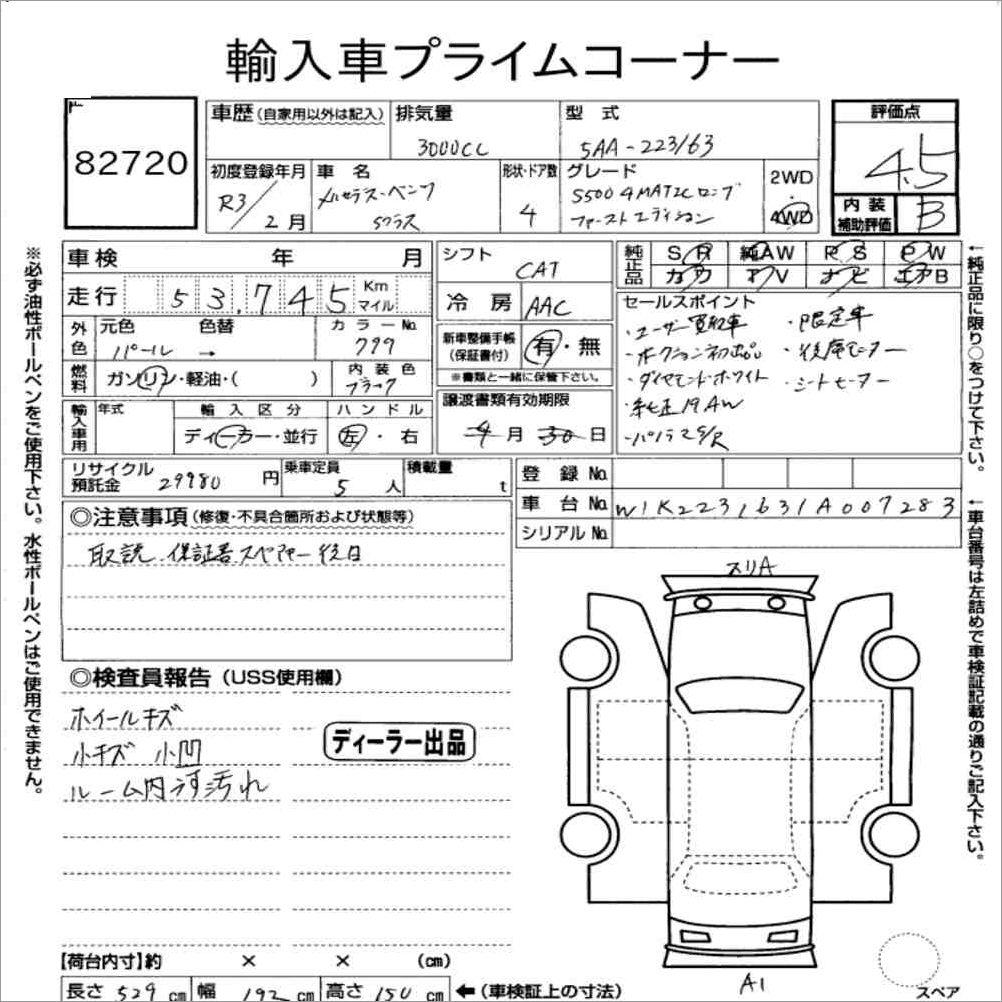 輸入車プライムコーナー
82720
車歴(自家用以外は記入) 排気量 3000CC 型式 5AA-223163
評価点 4.5
初度登録年月 R3/2月
車名 メルセデス・ベンツ Sクラス
形状・ドア数 4
グレード S500 4MATIC ロング ファーストエディション
2WD 4WD
内装補助評価 B
車検 年 月
走行 53,745 Km マイル
シフト CAT
冷房 AAC
純正品 SR 純AW RS PW
カワ TV ナビ エアB
外色 元色 色替 カラーNo.
パール → 799
燃料 ガソリン・軽油・( ) 内装色 ブラック
新車整備手帳(保証書付) 有・無
※書類と一緒に保管下さい。
譲渡書類有効期限
4月30日
輸入車用 年式 輸入区分 ハンドル
ディーラー・並行 左・右
セールスポイント
・ユーザー買取車 ・限定車
・オークション初出し ・後席モニター
・ダイヤモンドホワイト ・シートヒーター
・純正19AW
・パノラマS/R
リサイクル預託金 29980円 乗車定員 5人 積載量 t
登録No.
車台No. W1K2231631A007283
シリアルNo.
◎注意事項(修復・不具合箇所および状態等)
取説、保証書スペアキー後日
◎検査員報告(USS使用欄)
ホイールキズ
小キズ 小凹
ルーム内汚れ
ディーラー出品
スリA
A1
スペア
【荷台内寸】約 × × (cm)
長さ 529 cm 幅 192 cm 高さ 150 cm ←(車検証上の寸法)
※必ず油性ボールペンをご使用下さい。水性ボールペンはご使用できません。
←純正品に限り○をつけて下さい。
←車台番号は左詰めで車検証記載の通りご記入下さい。